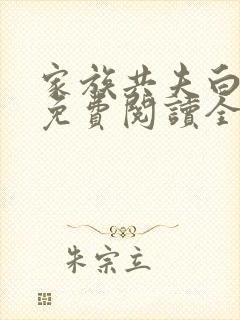 家族共夫白
免費閱讀全
朱宗立